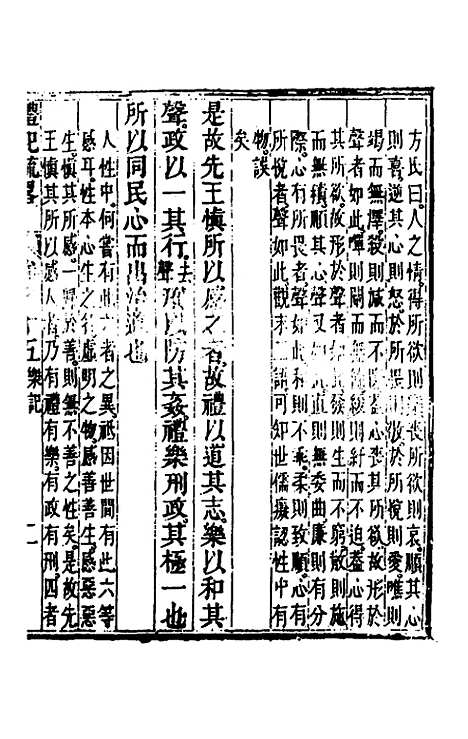 方氏曰人之情得所欲則樂喪所欲則哀順其心
則喜逆其心則怒於所畏則敬於所悅則愛噍則
竭而無澤殺則减而不隆蓋心喪其所欲故形於
聲者如此嘽則闡而無餘緩則紓而不迫蓋心得
其所欲故形於聲者如此發則生而不窮散則施
而無積順其心聲又如此直則無委曲廉則有分
際心有所畏者聲如此和則不乖柔則致順心有
所悅者聲如此觀末二語可知世儒癡認性中有
物誤
矣
是故先王慎所以感之者故禮以道其志樂以和其
聲政以一其行去聲刑以防其姦禮樂刑政其極一也
所以同民心而出治道也
人性中何嘗有此六者之異祇因世間有此六等
感耳性本心生之
虛明之物感善善生感惡惡
生慎其所感一歸於善則無不善之性矣是故先
王慎其所以感人者乃有禮有樂有政有刑四者
禮記疏畧
五樂記
二